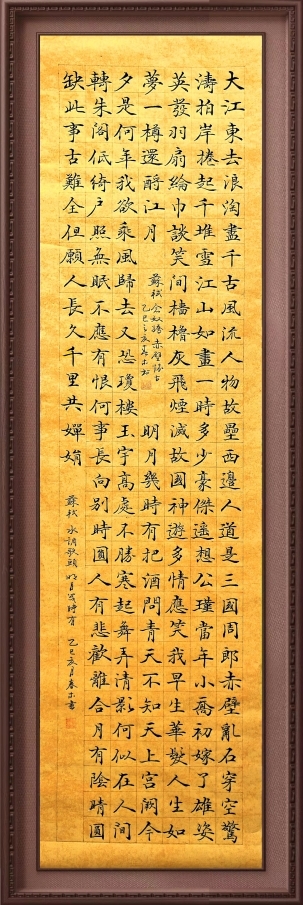 大江東去浪淘盡千古風流人物故壘西邊人道是三國周郎赤壁亂石穿空驚
濤拍岸捲起千堆雪江山如畫一時多少豪傑遙想公瑾當年小喬初嫁了雄姿
英發羽扇綸巾談笑間檣櫓灰飛煙滅故國神遊多情應笑我早生華髮人生如
夢一樽還酹江月
蘇軾 念奴嬌 赤壁懷古
乙巳
明月幾時有把酒問青天不知天上宮闕今
夕是何年我欲乘風歸去又恐瓊樓玉宇高處不勝寒起舞弄清影何似在人間
轉朱閣低綺戶照無眠不應有恨何事長向別時圓人有悲歡離合月有陰晴圓
缺此事古難全但願人長久千里共嬋娟
蘇軾 水調歌頭 明月幾時有 乙巳亥月春木書